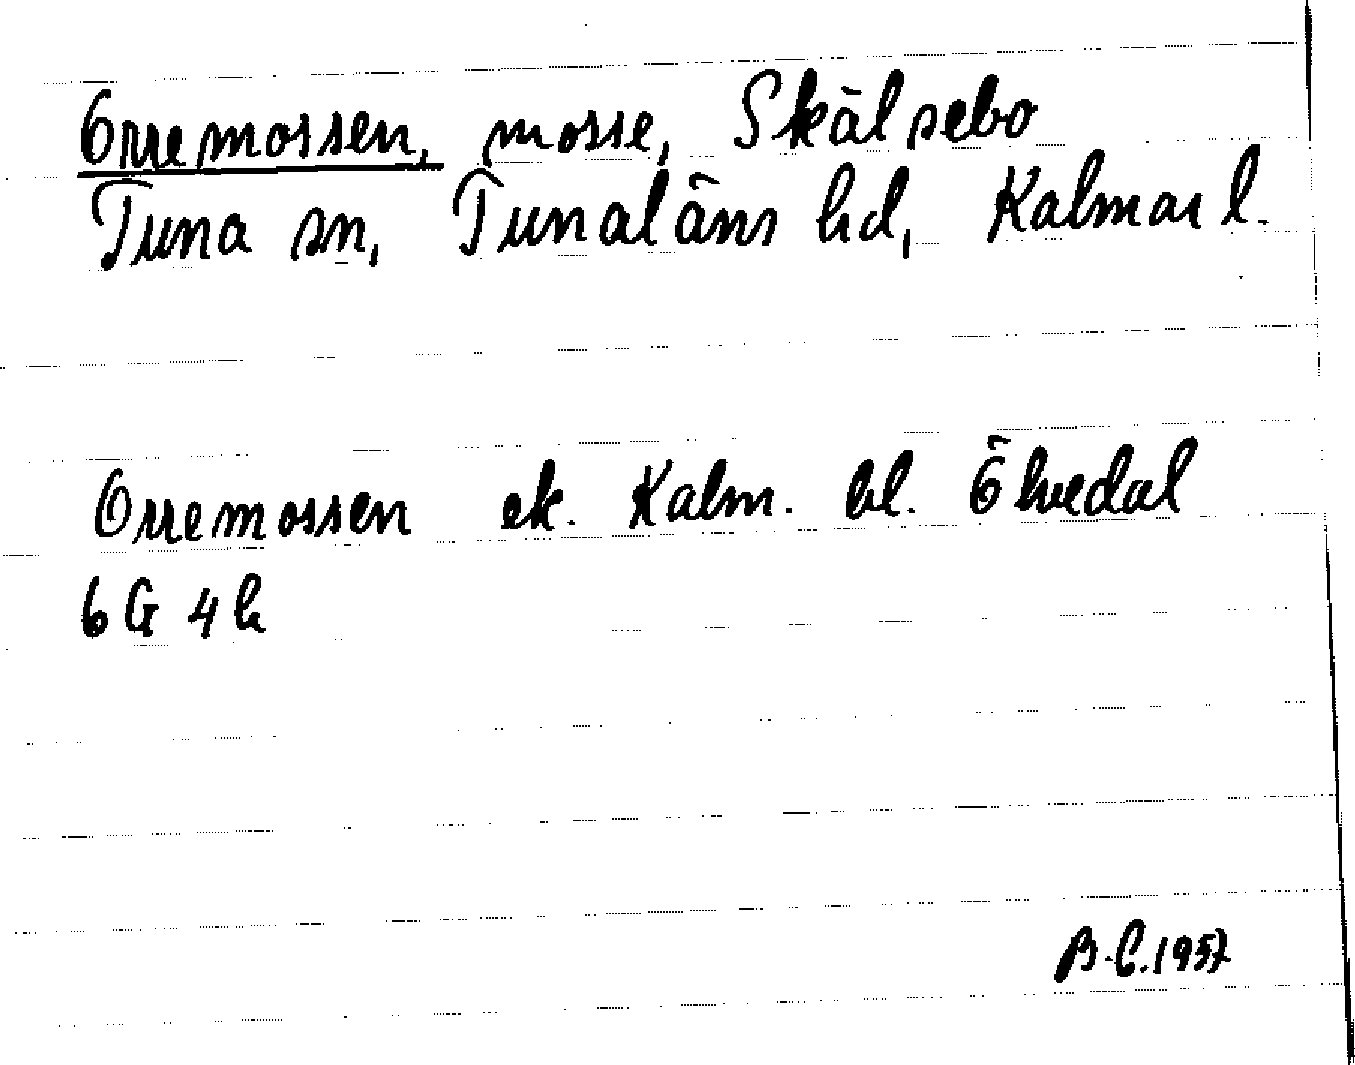 Orremossen, mosse, Skälsebo
Tuna sn, Tunaläns hd, Kalmar l.
Orremossen ek. Kalm. bl. Öhvedal
6G 4h
B.C. 1957